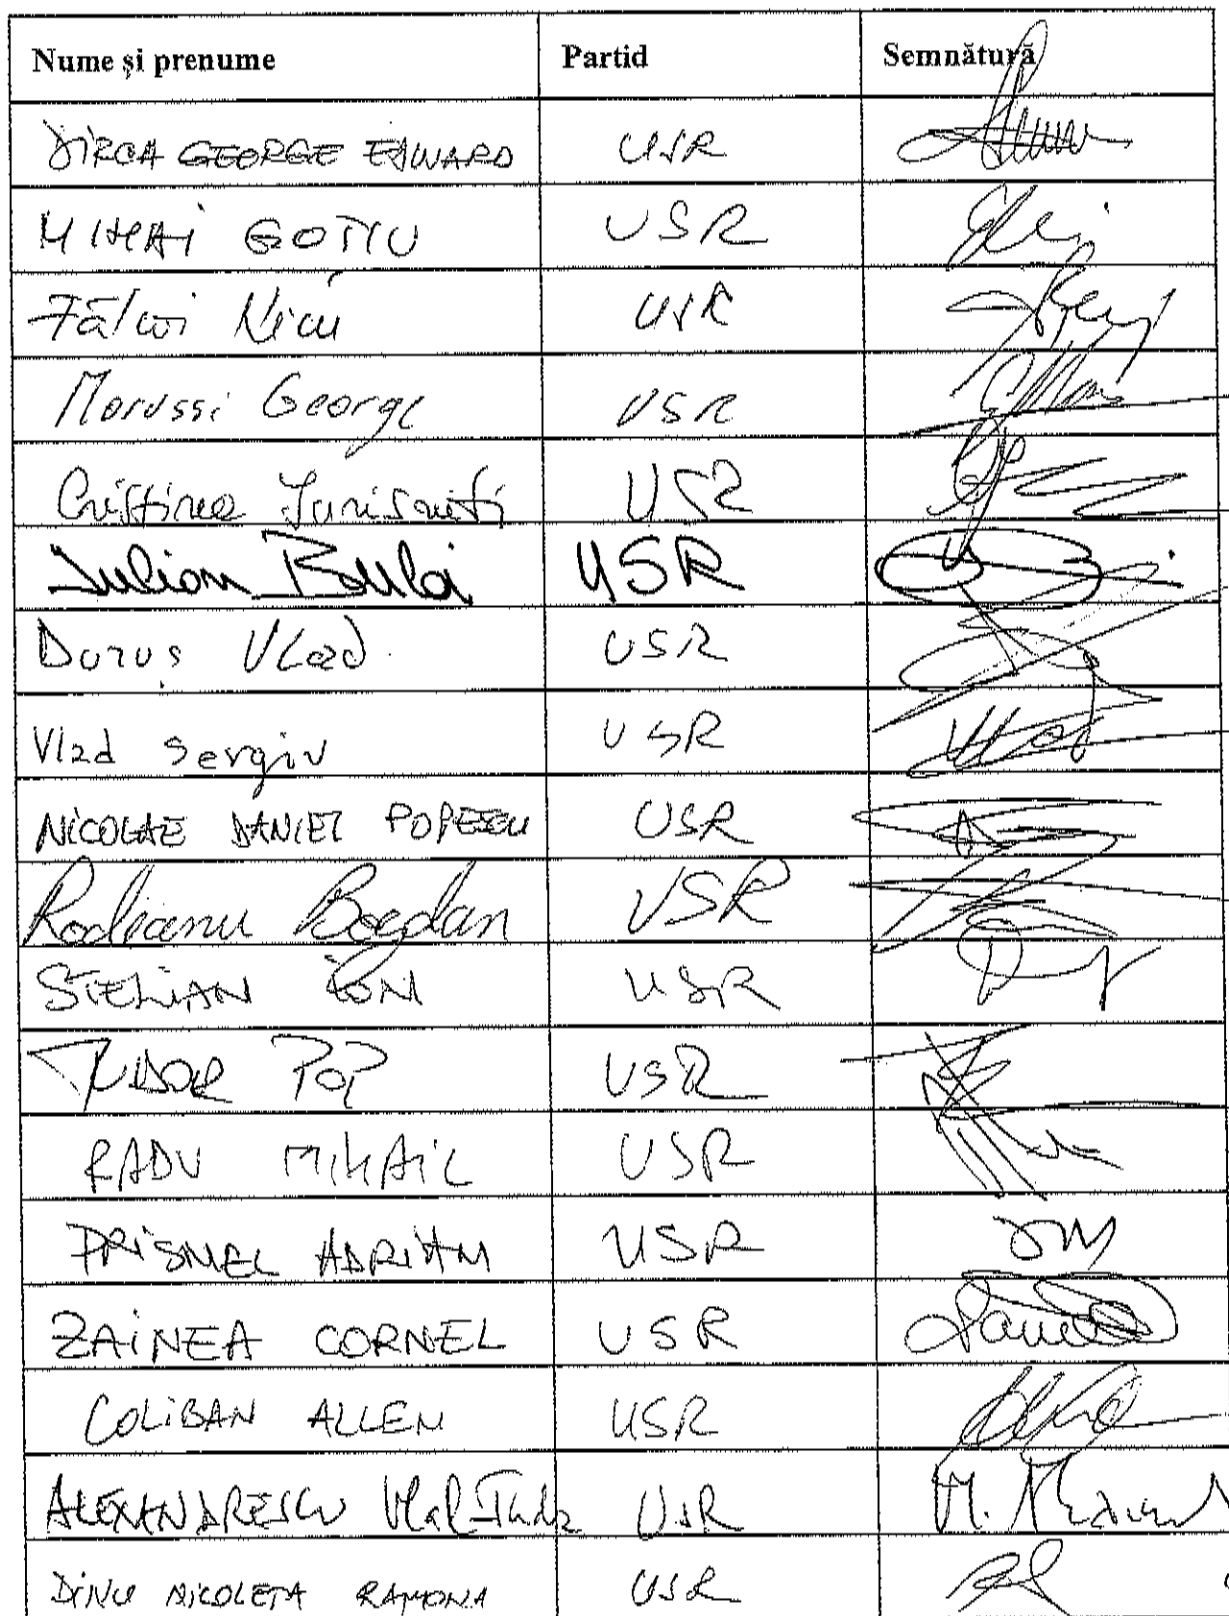 Nume și prenume Partid Semnătură
DÎRCĂ GEORGE EDUARD USR
MIHAI GOȚIU USR
Fălcoi Nicu USR
Marussi George USR
Cristina Iurișniți USR
Iulian Bulai USR
Duruș Vlad USR
Vlad Sergiu USR
NICOLAE DANIEL POPESCU USR
Rodeanu Bogdan USR
STELIAN ION USR
TUDOR POP USR
RADU MIHAIL USR
PRISNEL ADRIAN USR
ZAINEA CORNEL USR
COLIBAN ALLEN USR
ALEXANDRESCU Vlad Tudor USR
DINU NICOLETA RAMONA USR